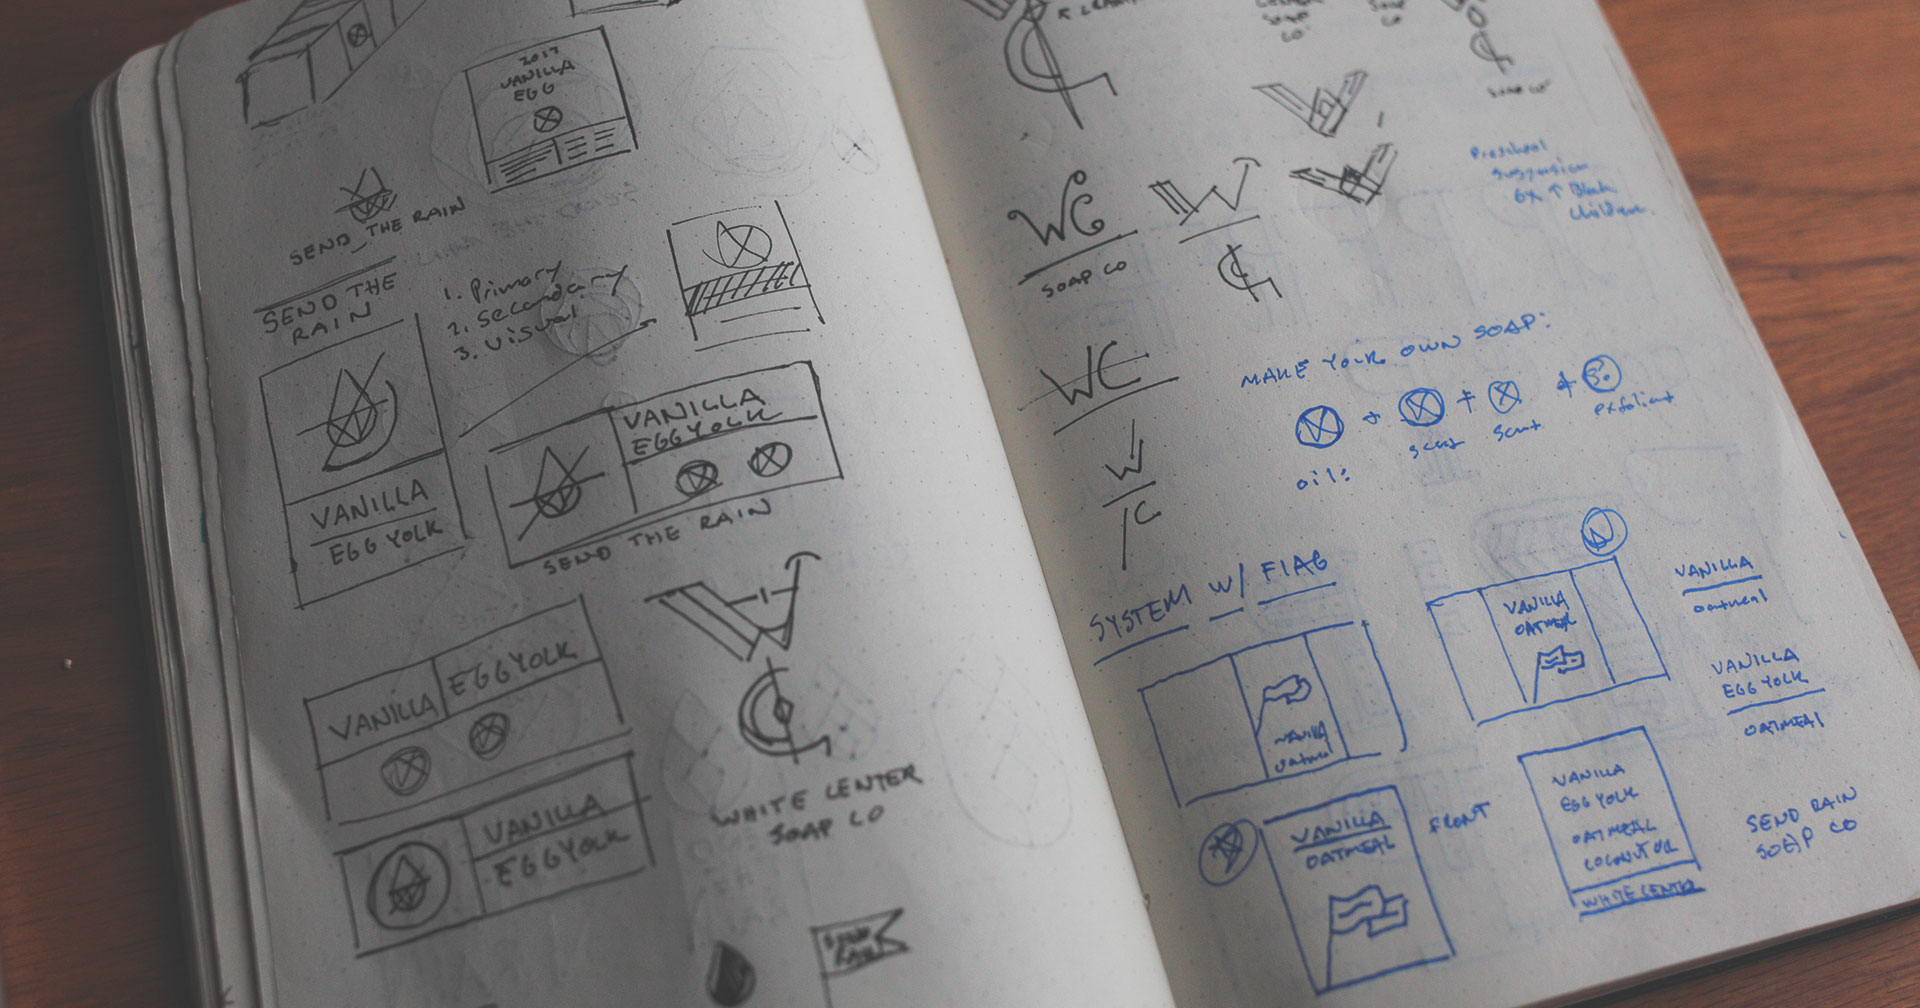 2017
VANILLA
EGG
SEND_THE RAIN
SEND THE
RAIN
1. Primary
2. Secondary
3. Visual
VANILLA
EGG YOLK
VANILLA
EGG YOLK
SEND THE RAIN
VANILLA
EGG YOLK
VANILLA
EGG YOLK
WHITE CENTER
SOAP CO
SEND
RAIN
SOAP
CO
SOAP CO
Preschool
suspension
6x ↑ Black
children
WC
SOAP CO
W
WC
W
C
MAKE YOUR OWN SOAP:
+ + +
oil: scent scent exfoliant
SYSTEM W/ FLAG
VANILLA
oatmeal
VANILLA
OATMEAL
VANILLA
oatmeal
VANILLA
EGG YOLK
OATMEAL
VANILLA
OATMEAL
FRONT
VANILLA
EGG YOLK
OATMEAL
COCONUT OIL
WHITE CENTER
SEND RAIN
SOAP CO